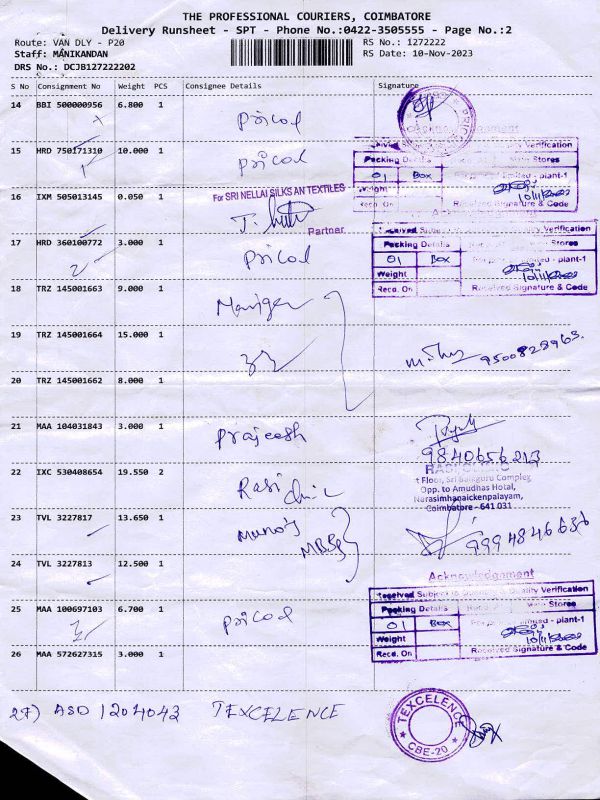 THE PROFESSIONAL COURIERS, COIMBATORE
Delivery Runsheet - SPT - Phone No.:0422-3505555 - Page No.:2
Route: VAN DLY - P20 RS No.: 1272222
Staff: MANIKANDAN RS Date: 10-Nov-2023
DRS No.: DCJB127222202
S No Consignment No Weight PCS Consignee Details Signature
14 BBI 500000956 6.800 1 Pricol
15 HRD 750171310 10.000 1 Pricol
Packing Details Main Stores
01 Box plant-1
Weight
Received Signature & Code
16 IXM 505013145 0.050 1 For SRI NELLAI SILKS AN TEXTILES
Partner
Quality Verification
17 HRD 360100772 3.000 1 Pricol
Packing Details Stores
01 Box plant-1
Weight
Recd. On Received Signature & Code
18 TRZ 145001663 9.000 1
19 TRZ 145001664 15.000 1
20 TRZ 145001662 8.000 1
21 MAA 104031843 3.000 1 Prajeesh
9840656213
22 IXC 530408654 19.550 2 Rasi clinic
RASI CLINIC
Floor, Sri Balaguru Complex
Opp. to Amudhas Hotal,
Narasimhanaickenpalayam,
Coimbatore - 641 031
23 TVL 3227817 13.650 1 Manoj MBBS
9994846636
24 TVL 3227813 12.500 1
Acknowledgment
Received Subject to Quality Verification
25 MAA 100697103 6.700 1 Pricol
Packing Details Stores
01 Box plant-1
Weight
Recd. On Received Signature & Code
26 MAA 572627315 3.000 1
27) ASD 1204043 TEXCELENCE
TEXCELENCE
CBE-20